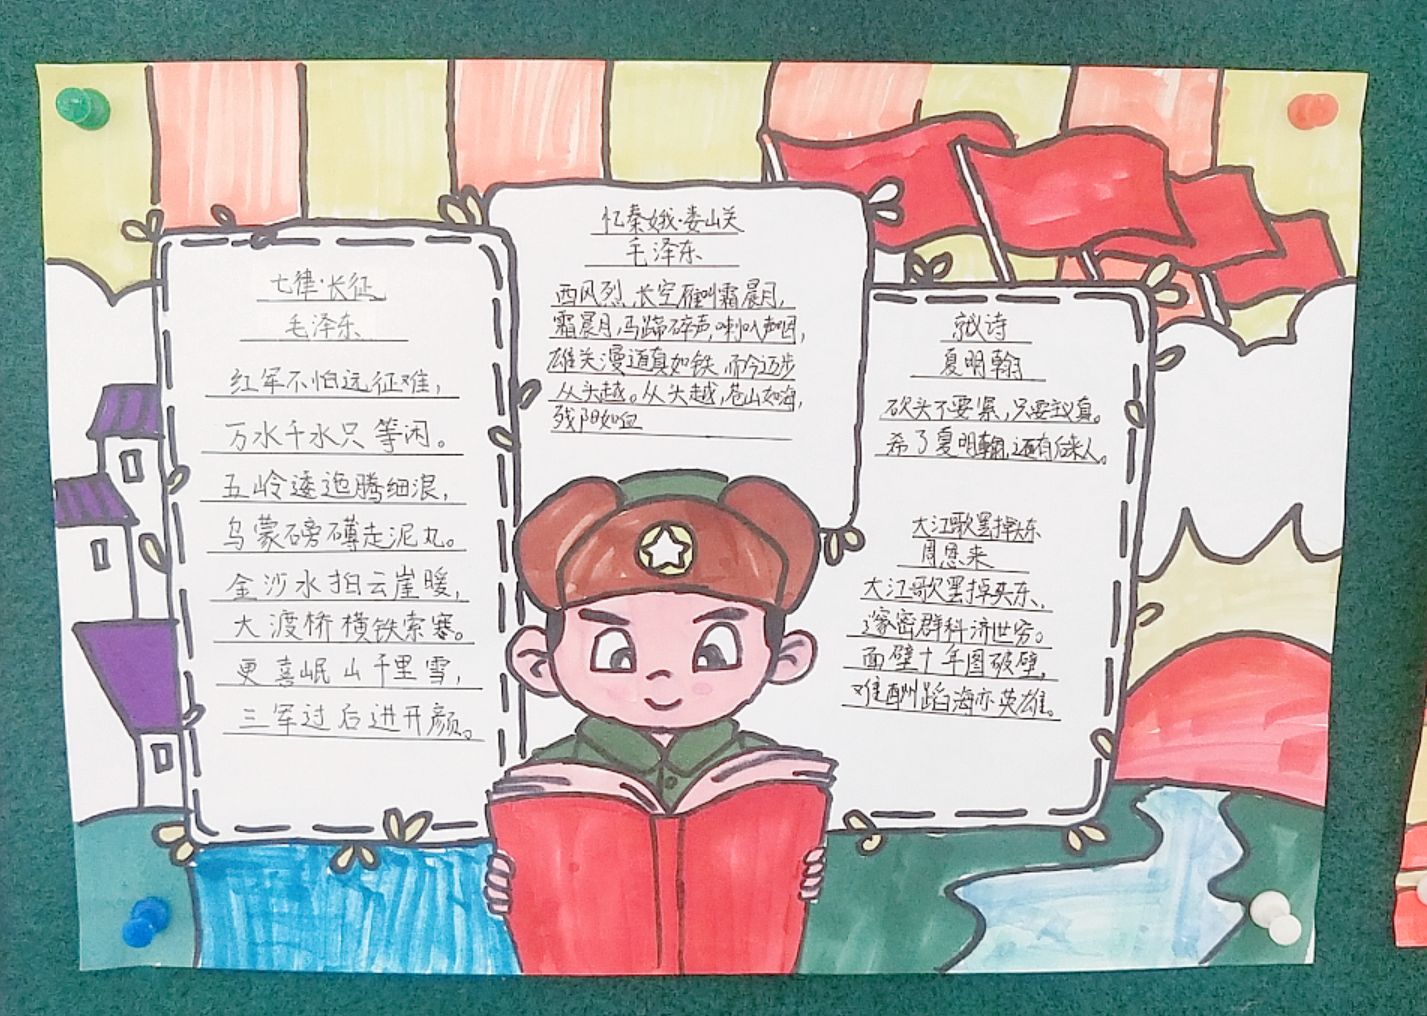 七律·长征
毛泽东
红军不怕远征难,
万水千水只等闲。
五岭逶迤腾细浪,
乌蒙磅礴走泥丸。
金沙水拍云崖暖,
大渡桥横铁索寒。
更喜岷山千里雪,
三军过后进开颜。
忆秦娥·娄山关
毛泽东
西风烈,长空雁叫霜晨月,
霜晨月,马蹄碎声,喇叭声咽,
雄关漫道真如铁,而今迈步
从头越。从头越,苍山如海,
残阳如血
就诗
夏明翰
砍头不要紧,只要主义真。
希了夏明翰,还有后来人。
大江歌罢掉头东
周恩来
大江歌罢掉头东,
邃密群科济世穷。
面壁十年图破壁,
难酬蹈海亦英雄。